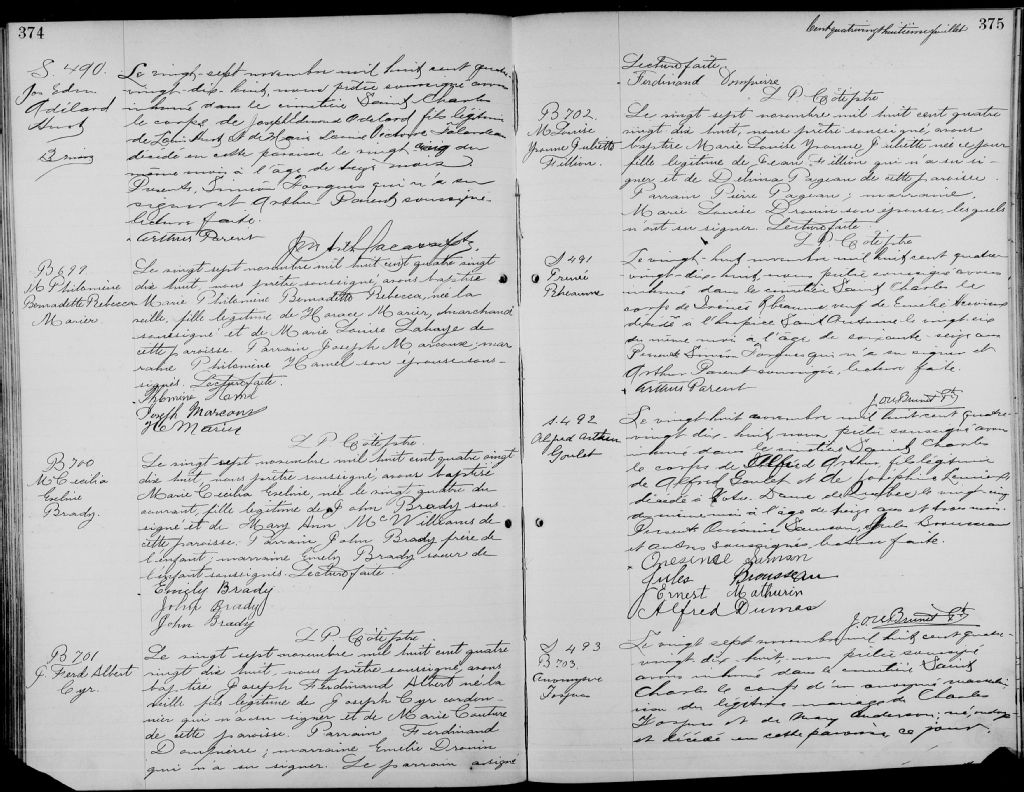 374
S. 490.
Jos Edm
Adélard
Huot
Le vingt-sept novembre mil huit cent quatre
vingt-dix-huit, nous prêtre soussigné avons
inhumé dans le cimetière Saint Charles
le corps de Joseph Edmond Adelard fils légitime
de Louis Huot et de Marie Louise
décédé en cette paroisse le vingt cinq du
même mois, à l'âge de mois
Présents, Siméon Fargues qui n'a su
signer et Arthur Parent soussigné
lecture faite.
Arthur Parent
B 699
M Philomène
Bernadette Rebecca
Marier
Le vingt sept novembre mil huit cent quatre vingt
dix huit, nous prêtre soussigné, avons baptisé
Marie Philomène Bernadette Rebecca, née la
veille, fille légitime de Horace Marier, marchand
soussigné et de Marie Louise Lahaye de
cette paroisse. Parrain Joseph Marcoux; mar
raine Philomène Hamel son épouse sous-
signés. Lecture faite.
Philomène Hamel
Joseph Marcoux
H Marier
L P Côté ptre
B 700
M Cecilia
Eveline
Brady.
Le vingt sept novembre mil huit cent quatre vingt
dix huit, nous prêtre soussigné, avons baptisé
Marie Cecilia Eveline, née le vingt quatre du
courant, fille légitime de John Brady sous-
signé et de Mary Ann McWilliams de
cette paroisse. Parrain John Brady frère de
l'enfant; marraine Emily Brady soeur de
l'enfant soussignés. Lecture faite.
Emily Brady
John Brady
John Brady
L P Côté ptre
B 701
J. Ferd Albert
Cyr.
Le vingt sept novembre mil huit cent quatre
vingt dix huit, nous prêtre soussigné, avons
baptisé Joseph Ferdinand Albert né la
veille fils légitime de Joseph Cyr cordon
nier qui n'a su signer et de Marie Couture
de cette paroisse. Parrain Ferdinand
Dompierre; marraine Emélie Drouin
qui n'a su signer. Le parrain a signé
Cent quatre vingt huitième feuillet
375
Lecture faite.
Ferdinand Dompierre
L P Côté ptre
B 702
M Louise
Yvonne Juliette
Fillion.
Le vingt sept novembre mil huit cent quatre
vingt dix huit, nous prêtre soussigné, avons
baptisé Marie Louise Yvonne Juliette née ce jour
fille légitime de Jean Fillion qui n'a su si-
gner et de Délima Pageau de cette paroisse.
Parrain Pierre Pageau; marraine
Marie Louise Drouin son épouse, lesquels
n'ont su signer. Lecture faite.
L P Côté ptre
S 491
Irénée
Rheaume
Le vingt-huit novembre mil huit cent quatre-
vingt-dix-huit, nous prêtre soussigné avons
inhumé dans le cimetière Saint Charles le
corps de Irénée Rheaume veuf de Emélie
décédé à l'hospice Saint Antoine le vingt six
du même mois à l'âge de soixante-seize ans
Présents Siméon Fargues qui n'a su signer et
Arthur Parent soussigné, lecture faite.
Arthur Parent
Jou Brunet Pt
S 492
Alfred Arthur
Goulet
Le vingt huit novembre mil huit cent quatre-
vingt-dix-huit, nous, prêtre soussigné avons
inhumé dans le cimetière Saint Charles
le corps de Alfred Arthur, fils légitime
de Alfred Goulet et de Joséphine
décédé à Notre Dame de Québec le vingt cinq
du même mois à l'âge de ans et trois mois.
Présents Onésime Samson, Jules Brousseau
et autres soussignés, lecture faite.
Onésime Samson
Jules Brousseau
Ernest Mathurin
Alfred Dumas
Jou Brunet Pt
S 493
B 703.
Anonyme
Le vingt sept novembre mil huit cent quatre-
vingt-dix-huit, nous prêtre soussigné
avons inhumé dans le cimetière Saint
Charles le corps d'un anonyme masculin
du légitime mariage de Charles
et de Mary Anderson; né,
et décédé en cette paroisse ce jour.